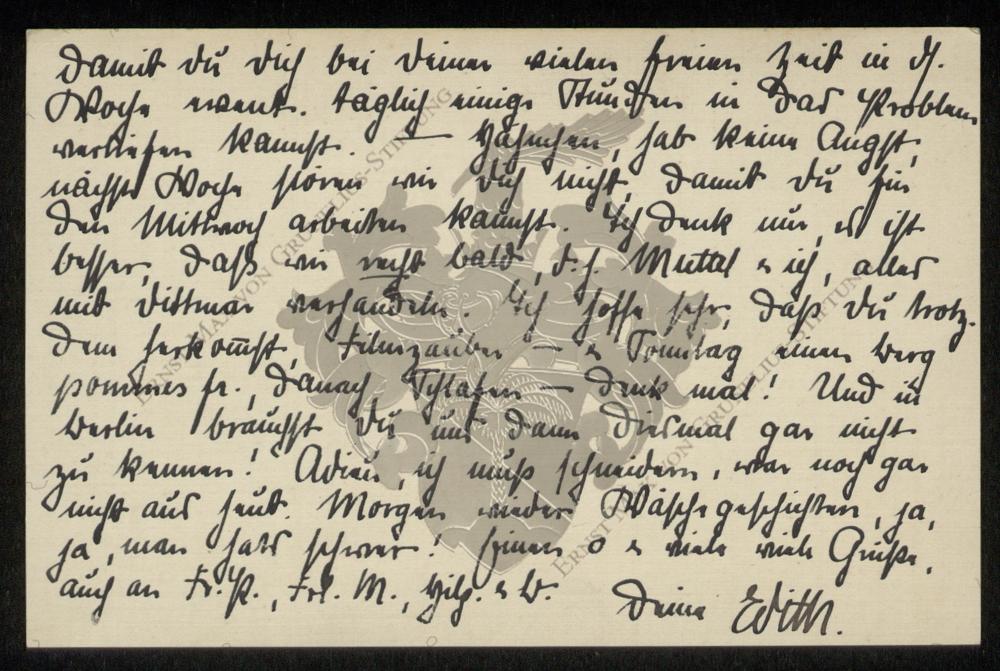 damit du dich bei deiner vielen freien Zeit in d.
Woche event. täglich einige Stunden in das Problem
vertiefen kannst. — Hähnchen, hab keine Angst,
nächste Woche stören wir dich nicht, damit du für
den Mittwoch arbeiten kannst. Ich denk nur, es ist
besser, daß wir recht bald, d. h. Muttel u ich, alles
mit Dittmar verhandeln. Ich hoffe sehr, daß du trotz-
dem herkom̅st, Filmzauber — u Sonntag einen Berg
pommes fr., danach Schlafen — denk mal! Und in
Berlin brauchst du uns dann diesmal gar nicht
zu kennen! Adieu, ich muß schneidern, war noch gar
nicht aus heut. Morgen wieder Wäschegeschichten, ja,
ja, man hats schwer! Einen o u viele viele Grüße,
auch an Fr. P., Frl. M., Hilp. u W.
Deine Edith.
ERNST MAX VON GRUNELIUS-STIFTUNG
ERNST MAX VON GRUNELIUS-STIFTUNG